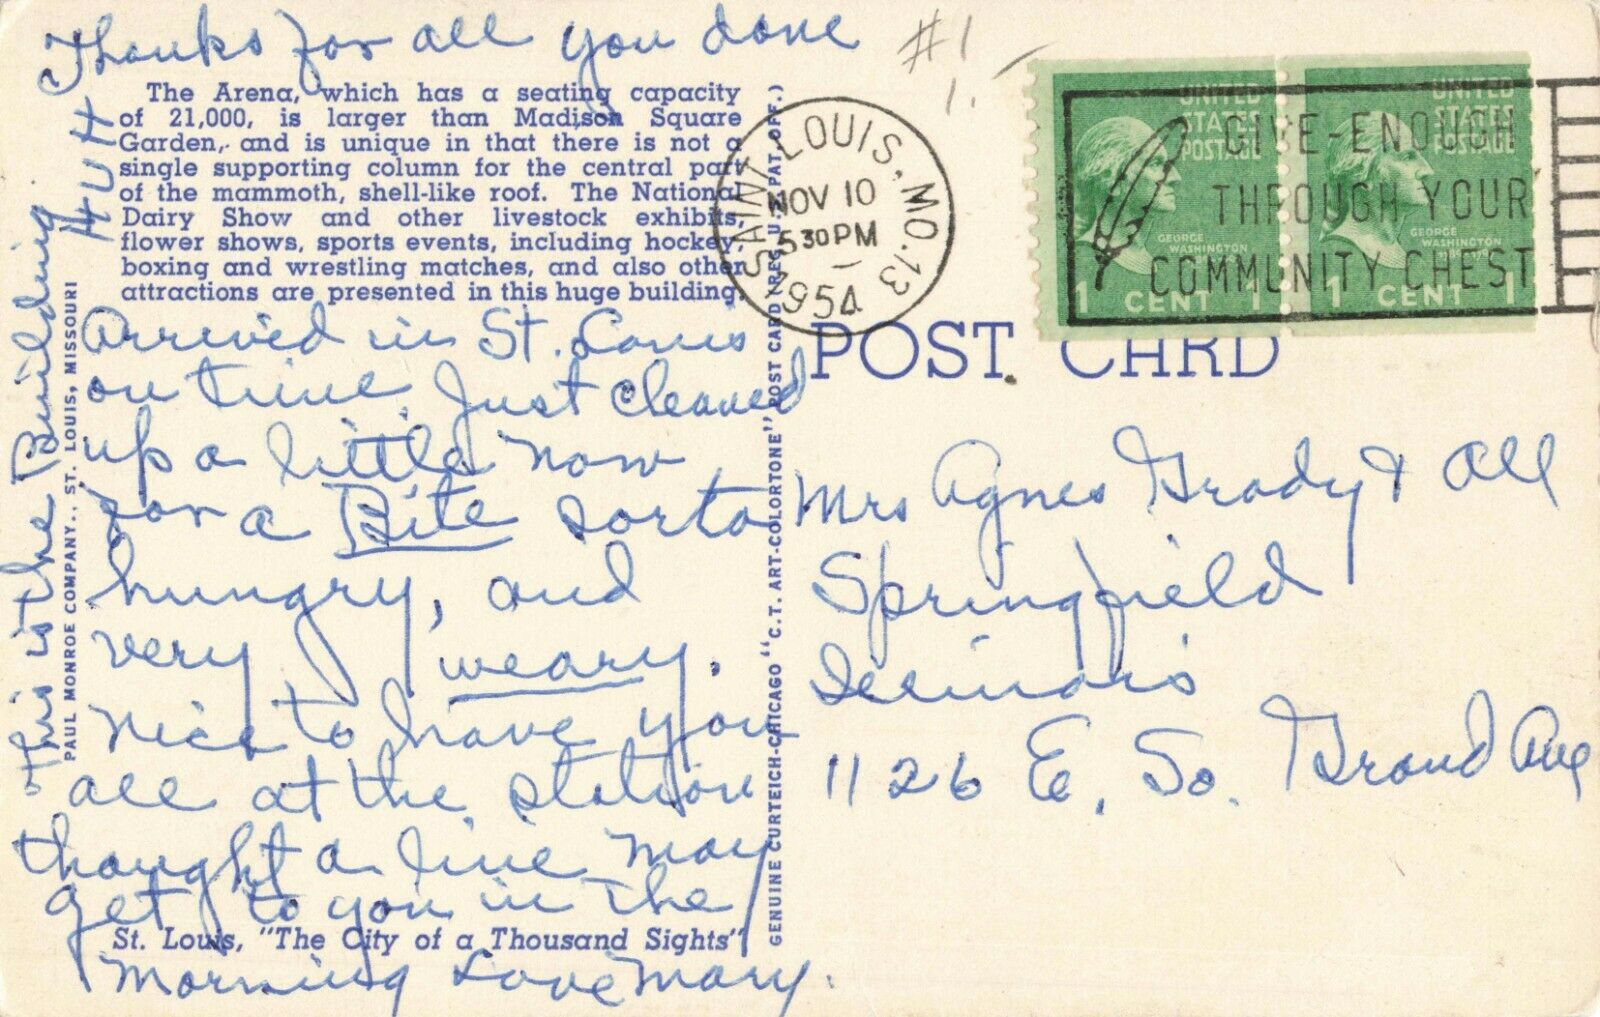 Thanks for all you done
#1
1.
The Arena, which has a seating capacity
of 21,000, is larger than Madison Square
Garden, and is unique in that there is not a
single supporting column for the central part
of the mammoth, shell-like roof. The National
Dairy Show and other livestock exhibits,
flower shows, sports events, including hockey,
boxing and wrestling matches, and also other
attractions are presented in this huge building.
Arrived in St. Louis
on time. Just cleaned
up a little now
for a Bite sorta
hungry, and
very weary.
nice to have you
all at the station
thought a line may
get to you in the
St. Louis, "The City of a Thousand Sights"
morning Love Mary.
This is the Building
HUH
PAUL MONROE COMPANY., ST. LOUIS, MISSOURI
GENUINE CURTEICH-CHICAGO "C.T. ART-COLORTONE" POST CARD (REG. U.S. PAT. OFF.)
SAINT LOUIS, MO. 13
NOV 10
5 30 PM
1954
UNITED
STATES
POSTAGE
GEORGE
WASHINGTON
1 CENT 1
UNITED
STATES
POSTAGE
GEORGE
WASHINGTON
1 CENT 1
GIVE-ENOUGH
THROUGH YOUR
COMMUNITY CHEST
POST CARD
Mrs Agnes Grady & All
Springfield
Illinois
1126 E. So. Grand Ave